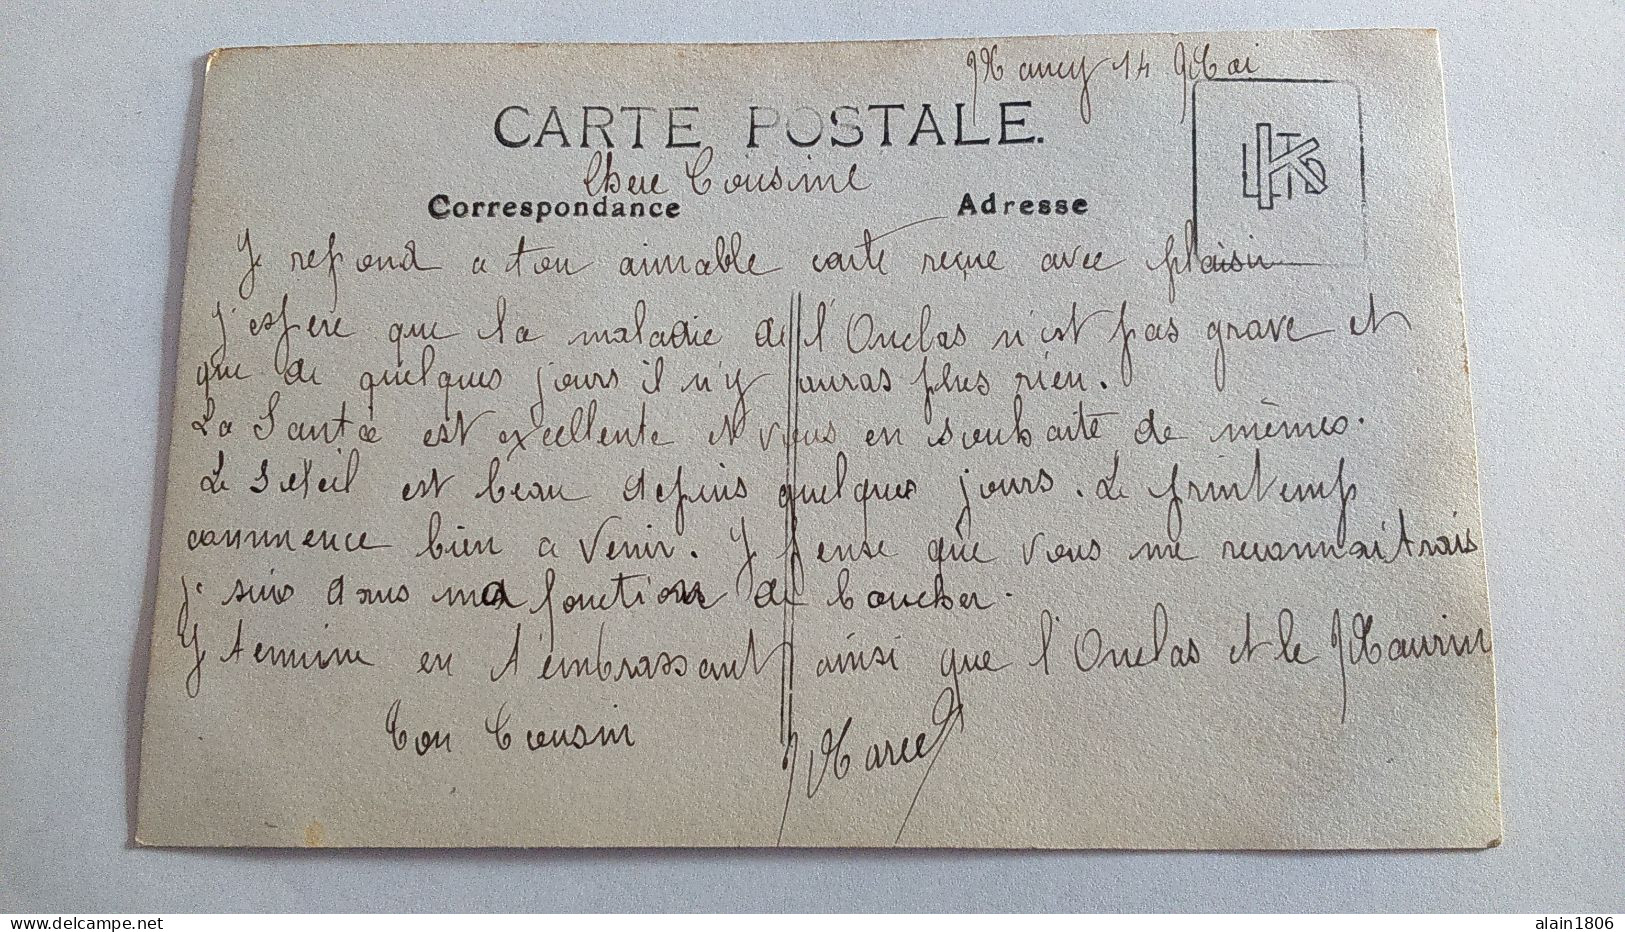 Nancy 14 Mai
CARTE POSTALE.
Chere Cousine
Correspondance Adresse
Je repond a ton aimable carte reçue avec plaisir
J'espère que la maladie de l'Onclas n'est pas grave et
que de quelques jours il n'y auras plus rien.
La Santée est excellente et vous en souhaite de mêmes.
Le Soleil est beau depuis quelques jours. Le printemp
commence bien a venir. Je pense que vous me reconnaitrais
je suis dans ma fonction de boucher.
Je termine en t'embrassant ainsi que l'Onclas et le Maurin
Ton Cousin Marcel
alain1806